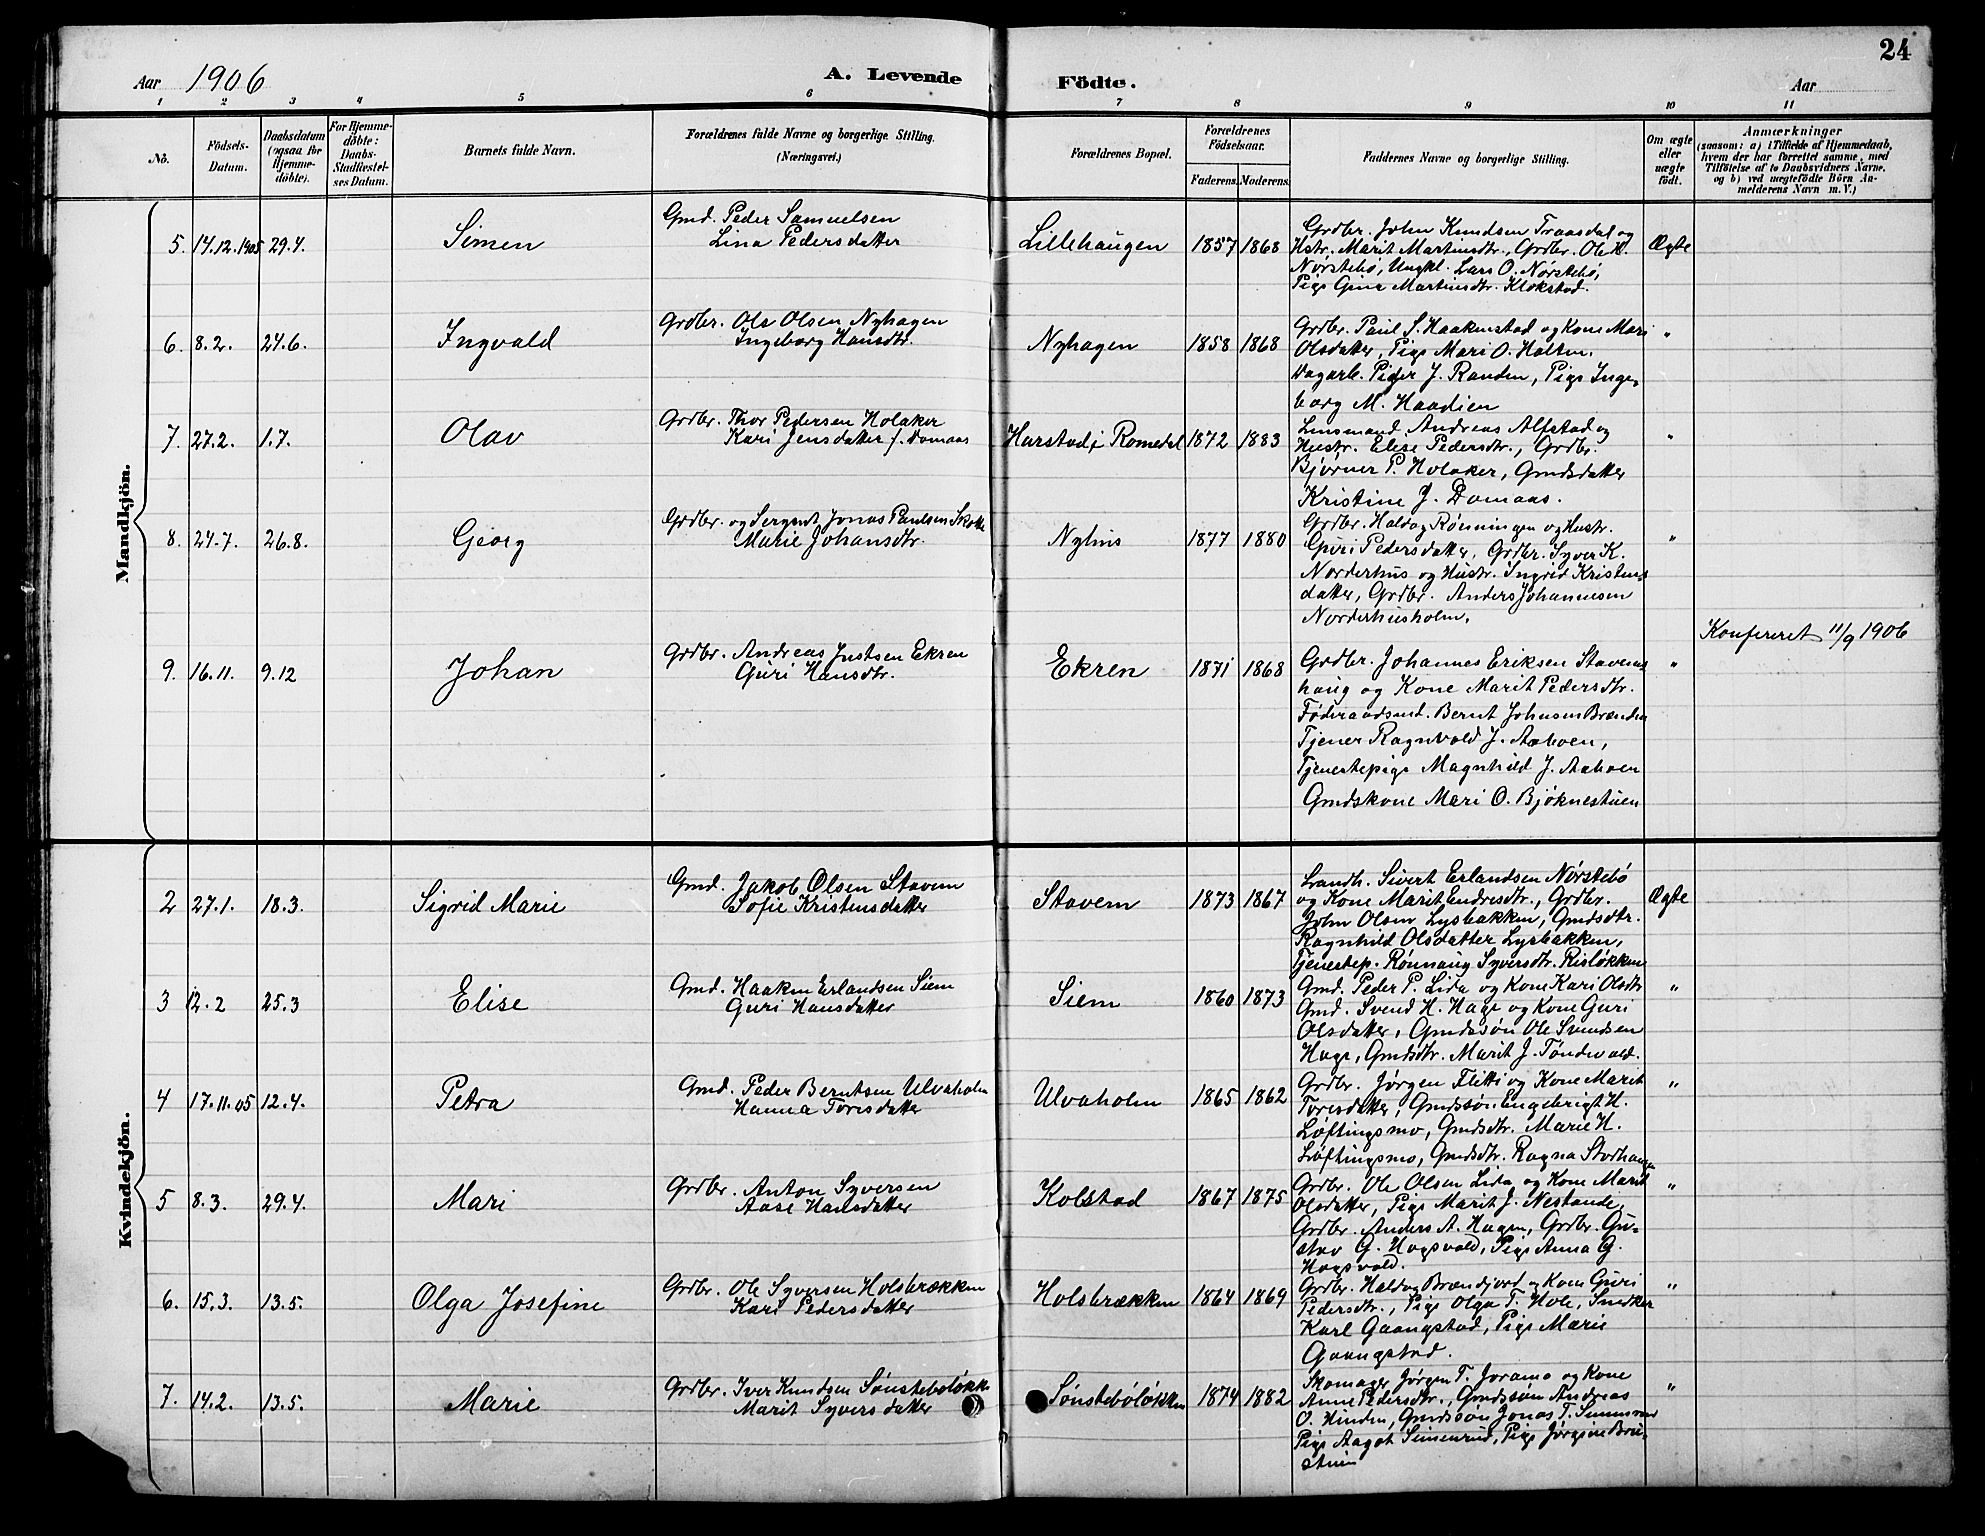 24
Aar 1906
A. Levende Födte.
Aar
1 2 3 4 5 6 7 8 9 10 11
No.
Födsels-Datum.
Daabsdatum (ogsaa for Hjemme-döbte).
For Hjemme-döbte: Daabs-Stadfæstel-ses Datum.
Barnets fulde Navn.
Forældrenes fulde Navne og borgerlige Stilling. (Næringsvei.)
Forældrenes Bopæl.
Forældrenes Födselsaar.
Faderens. Moderens.
Faddernes Navne og borgerlige Stilling.
Om ægte eller uægte födt.
Anmærkninger
(saasom: a) i Tilfælde af Hjemmedaab,
hvem der har forrettet samme, med
Tilföielse af to Daabsvidners Navne,
og b) ved uægtefödte Börn An-
melderens Navn m. V.)
Mandkjön.
5. 14.12.1905 29.4. Simen
Gmd. Peder Samuelsen
Lina Pedersdatter
Lillehaugen 1857 1868
Grdbr. John Knudsen Traasdal og
Hstr. Marit Martinsdtr., Grdbr. Ole K.
Nørstebø, Ungkl. Lars O. Nørstebø,
Pige Gina Martinsdtr. Klokstad.
Ægte
6. 8.2. 24.6. Ingvald
Grdbr. Ole Olsen Nyhagen
Ingeborg Hansdtr.
Nyhagen 1858 1868
Grdbr. Paul S. Haakenstad og Kone Mari
Olsdatter, Pige Mari O. Holten,
Dagarb. Peder J. Randen, Pige Inge-
borg M. Haadien
"
7. 27.2. 1.7. Olav
Grdbr. Thor Pedersen Holaker
Kari Jensdatter f. Domaas
Harstad i Romedal 1872 1883
Lensmand Andreas Alfstad og
Hustr. Elise Pedersdtr., Grdbr.
Bjørner P. Holaker, Gmdsdatter
Kristine J. Domaas.
"
8. 24.7. 26.8. Georg
Grdbr. og Sergent Jonas Paulsen
Marie Johansdtr.
Nyhus 1877 1880
Grdbr. Haldog Rønningen og Hustr.
Guri Pedersdatter, Grdbr. Syver K.
Norderhus og Hustr. Ingrid Kristens-
datter, Grdbr. Anders Johannesen
Norderhusholm.
"
Konfereret 11/9 1906
9. 16.11. 9.12 Johan
Grdbr. Andreas Justsen Ekren
Guri Hansdtr.
Ekren 1871 1868
Grdbr. Johannes Eriksen Stavens-
haug og Kone Marit Pedersdtr.
Føderaadsmd. Bernt Johnsen Brænden
Tjener Ragnvald J. Aahoen,
Tjenestepige Magnhild J. Aahoen
Gmdskone Mari O. Bjøknestuen
"
Kvindekjön.
2 27.1. 18.3. Sigrid Marie
Gmd. Jakob Olsen Stavem
Sofie Kristensdatter
Stavem 1873 1867
Landh. Sivert Erlandsen Nørstebø
og Kone Marit Endresdtr., Grdbr.
John Olsen Lysbakken, Gmdsdtr.
Ragnhild Olsdatter Lysbakken,
Tjenestep. Rønnaug Syversdtr. Risløkken
Ægte
3 12.2 25.3 Elise
Gmd. Haaken Erlandsen Siem
Guri Hansdatter
Siem 1860 1873
Gmd. Peder P. Lida og Kone Kari Olsdtr
Gmd. Svend H. Hage og Kone Guri
Olsdatter, Gmdssøn Ole Svendsen
Hage, Gmdsdtr. Marit J. Tøndevold.
"
4 17.11.05 12.4. Petra
Gmd. Peder Berntsen Ulvaholm
Hanna Toresdatter
Ulvaholm 1865 1862
Grdbr. Jørgen Flitti og Kone Marit
Toresdatter, Gmdssøn Engebrigt H.
Løftingsmo, Gmdsdtr. Marie H.
Løftingsmo, Gmdsdtr. Ragna Storhaugen
"
5 8.3. 29.4. Mari
Grdbr. Anton Syversen
Aase Hansdatter
Kolstad 1867 1875
Grdbr. Ole Olsen Lida og Kone Marit
Olsdatter, Pige Marit J. Nestande,
Grdbr. Anders A. Hagen, Grdbr. Gu-
stav G. Hagevold, Pige Anna G.
Hagevold.
"
6. 15.3. 13.5. Olga Josefine
Grdbr. Ole Syversen Holsbrækken
Kari Pedersdatter
Holsbrækken 1864 1869
Grdbr. Haldog Brændjord og Kone Guri
Pedersdtr., Pige Olga T. Hole, Snedker
Karl Gaangstad, Pige Marie
Gaangstad.
"
7. 14.2. 13.5. Marie
Grdbr. Iver Knudsen Sønstebøløkk.
Marit Syversdatter
Sønstebøløkken 1874 1882
Skomager Jørgen T. Joramo og Kone
Anne Pedersdtr., Gmdssøn Andreas
O. Hinden, Gmdssøn Jonas T. Simenrud
Pige Aagot Simenrud, Pige Jørgine
"